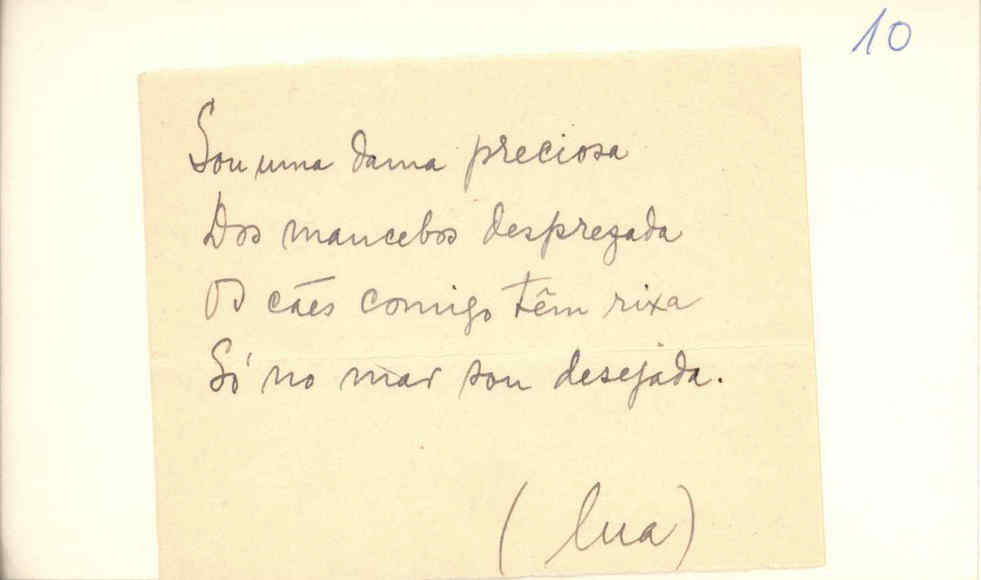 10
Sou uma dama preciosa
Dos mancebos desprezada
Os cães comigo têm rixa
Só no mar sou desejada.
(lua)